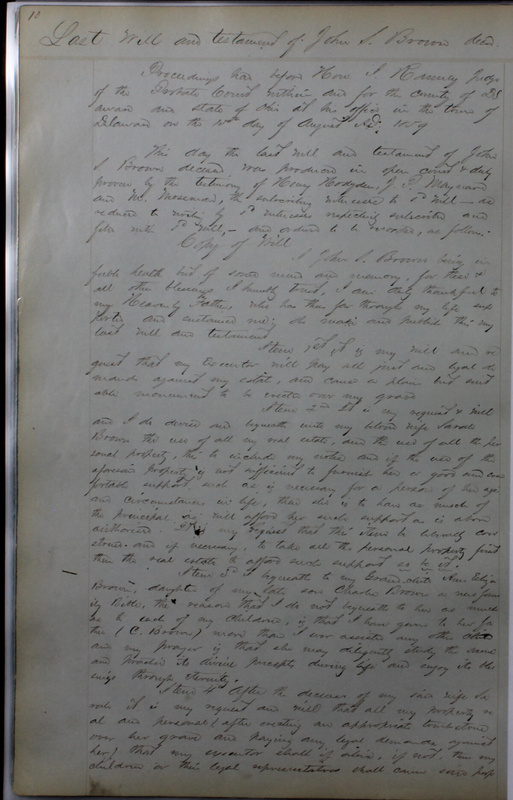 10
Last Will and testament of John S. Brown decd.
Proceedings had before Hon. J. Ramsey Judge
of the Probate Court within and for the county of Del
aware and state of Ohio at his office in the town of
Delaware on the day of August A.D. 1859
This day the last will and testament of John
S Brown deceased was produced in open court & duly
proven by the testimony of Henry Hodgden, J. P. Maynard
and Wm. the subscribing witnesses to sd Will – as
reduced to writing by sd witnesses respecting subscribed and
filed with sd Will, – and ordered to be recorded, as follows.
Copy of Will
I John S. Brown being in
feeble health but of sound mind and memory, for these &
all other blessings I humbly trust, I am truly thankful to
my Heavenly Father, who has thus far through my life sup
ported and sustained me; do make and publish this my
last will and testament
Item 1st It is my will and re
quest that my Executor will pay all just and legal de
mands against my estate, and cause a plain but suit
able monument to be erected over my grave
Item 2nd It is my request & will
and I do devise and bequeath unto my beloved wife Sarah
Brown the use of all my real estate, and the use of all the per
sonal property, this to include my notes and if the use of the
aforesaid property is not sufficient to furnish her a good and com
fortable support such as is necessary for a person of her age
and circumstances in life, then she is to have as much of
the principal as will afford her such support as is above
authorized. It is my request that this Item be liberally con
strued and if necessary, to take all the personal property first
then the real estate to afford such support
Item 3d I bequeath to my Grand child Ann Eliza
Brown, daughter of my late son Charles Brown a new fam
ily Bible, the reason that I do not bequeath to her as much
as to each of my children, is that I have given to her fa
ther (C. Brown) more than I ever assisted any other child
and my prayer is that she may diligently study the same
and practice its divine precepts during life and enjoy its bles
sings through Eternity.
Item 4 After the decease of my said wife Sa
rah it is my request and will that all my property re
al and personal (after erecting an appropriate tombstone
over her grave and paying any legal demands against
her) that my executor shall if alive, if not, then my
children or their legal representatives shall cause said prop